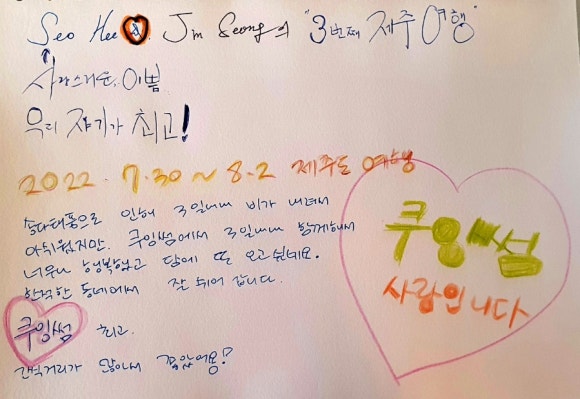 Seo Hee & Jin Seong의 "3번째 제주여행"
사랑스러운, 이쁨
우리 쟈기가 최고!
2022. 7.30 ~ 8.2 제주도 여행
송다태풍으로 인해 3일내내 비가 내려서
아쉬웠지만, 쿠잉썸에서 3일내내 함께해서
너무나 행복했고 담에 또 오고 싶네요.
한적한 동네에서 잘 쉬어 갑니다.
쿠잉썸 최고
간식거리가 많아서 좋았어용!
쿠잉썸
사랑입니다